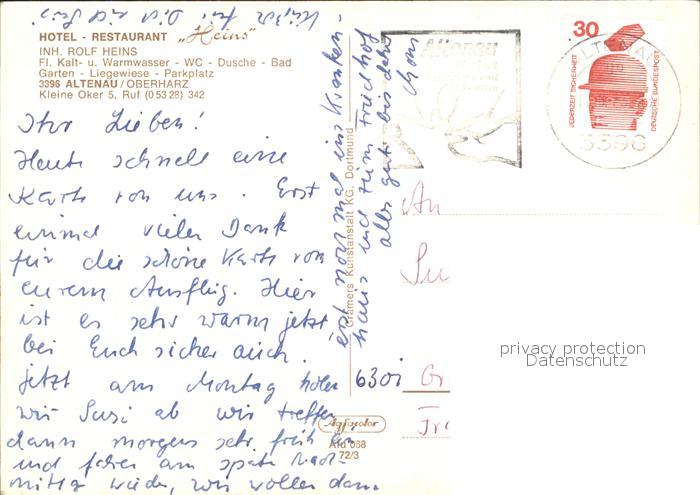 HOTEL - RESTAURANT „Heins"
INH. ROLF HEINS
Fl. Kalt- u. Warmwasser - WC - Dusche - Bad
Garten - Liegewiese - Parkplatz
3396 ALTENAU/OBERHARZ
Kleine Oker 5, Ruf (0 53 28) 342
Ihr Lieben!
Heute schnell eine
Karte von uns. Erst
einmal vielen Dank
für die schöne Karte von
eurem Ausflug. Hier
ist es sehr warm jetzt,
bei Euch sicher auch.
Jetzt am Montag holen
wir Susi ab wir treffen
dann morgens sehr früh
und fahren am späten Nach-
mittag wieder, wir wollen dann
erst noch mal ins Kranken-
haus und zum Friedhof
alles gute bis dahin
Cramers Kunstanstalt KG, Dortmund
Agfacolor
Afu 068
72/3
Altenau
30
JEDERZEIT SICHERHEIT
DEUTSCHE BUNDESPOST
ALTENAU
3396
An
6301 Gr
privacy protection
Datenschutz